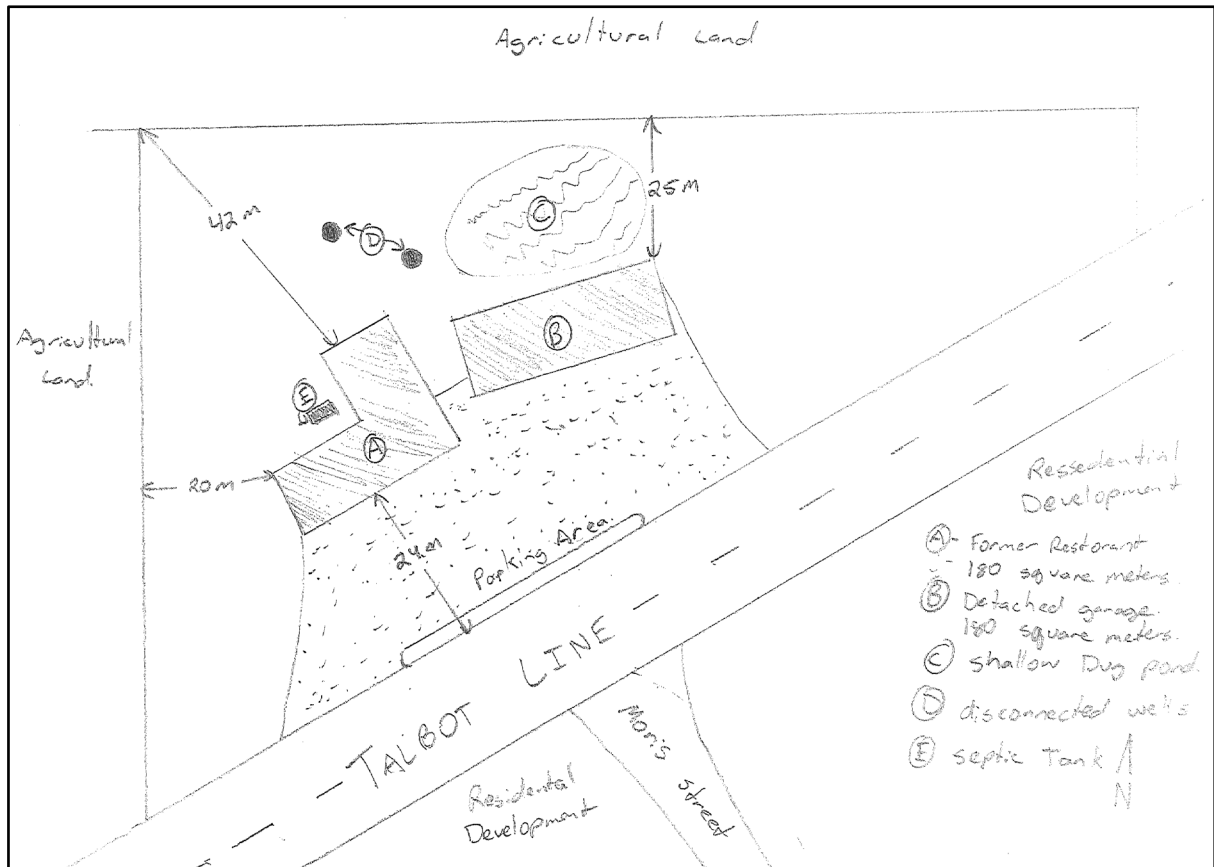 Agricultural Land
42 m
D
C
25 m
Agricultural
Land.
B
E
A
20 m
24 m
Parking Area.
TALBOT LINE
Morris street
Residental
Development
Ressedential
Development
A - Former Restorant
180 square meters.
B Detached garage.
180 square meters.
C shallow Dug pond.
D disconnected wells
E septic Tank
N